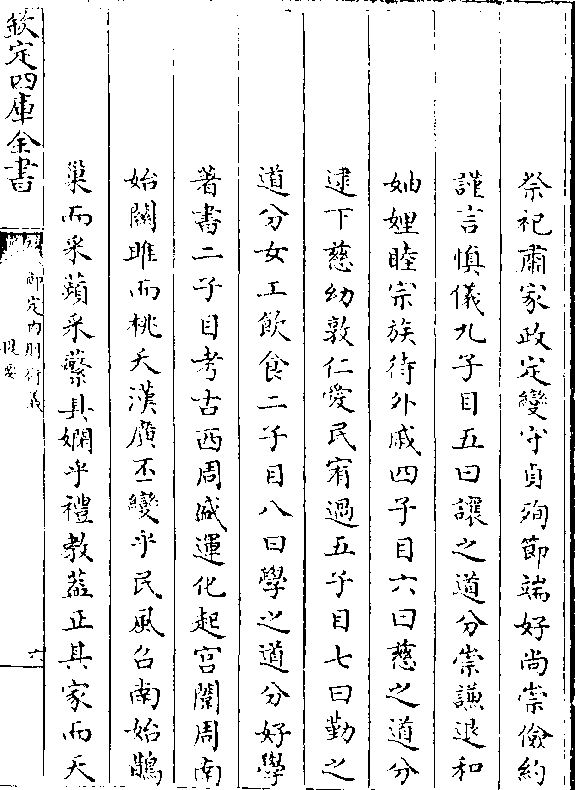 祭祀肅家政定變守貞殉節端好尚崇儉約
謹言慎儀九子目五曰讓之道分崇謙退和
妯娌睦宗族待外戚四子目六曰慈之道分
逮下慈幼敦仁愛民宥過五子目七曰勤之
道分女工飲食二子目八曰學之道分好學
著書二子目考古西周盛運化起宫闈周南
始關雎而桃夭漢廣丕變乎民風召南始鵲
巢而采蘋采蘩具嫻乎禮教蓋正其家而天
欽定四庫全書
御定内則衍義
提要